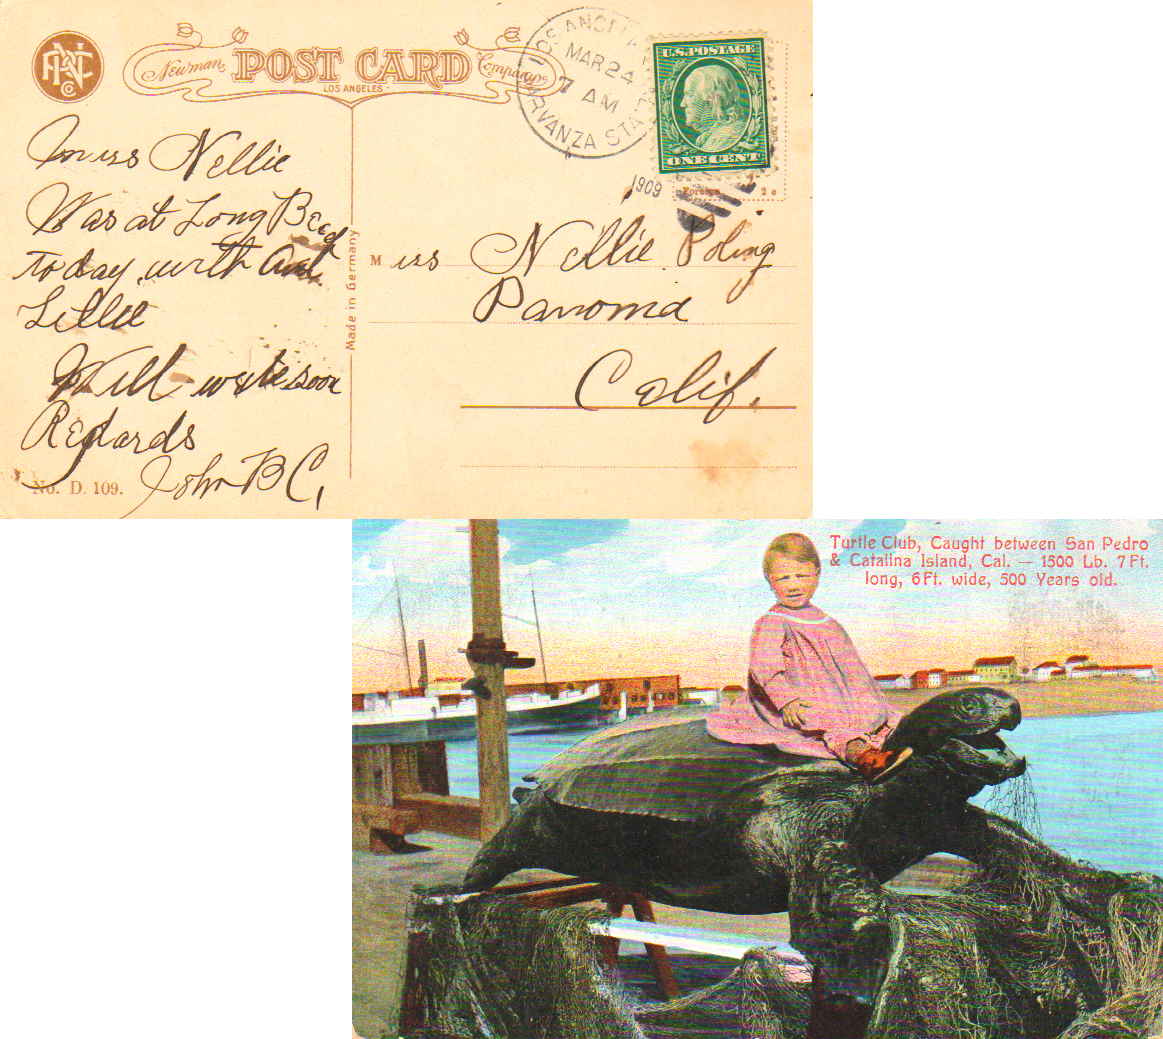 PNC Co
Newman POST CARD Company
LOS ANGELES
LOS ANGELES
MAR 24
7 AM
GARVANZA STA.
1909
U.S. POSTAGE
ONE CENT
Foreign 2c
Miss Nellie
Was at Long Beach
to day, with Aunt
Lillie
Will write soon
Regards
John B C,
No. D. 109.
Made in Germany
Miss Nellie Poling
Panoma
Calif.
Turtle Club, Caught between San Pedro
& Catalina Island, Cal. — 1500 Lb. 7 Ft.
long, 6 Ft. wide, 500 Years old.